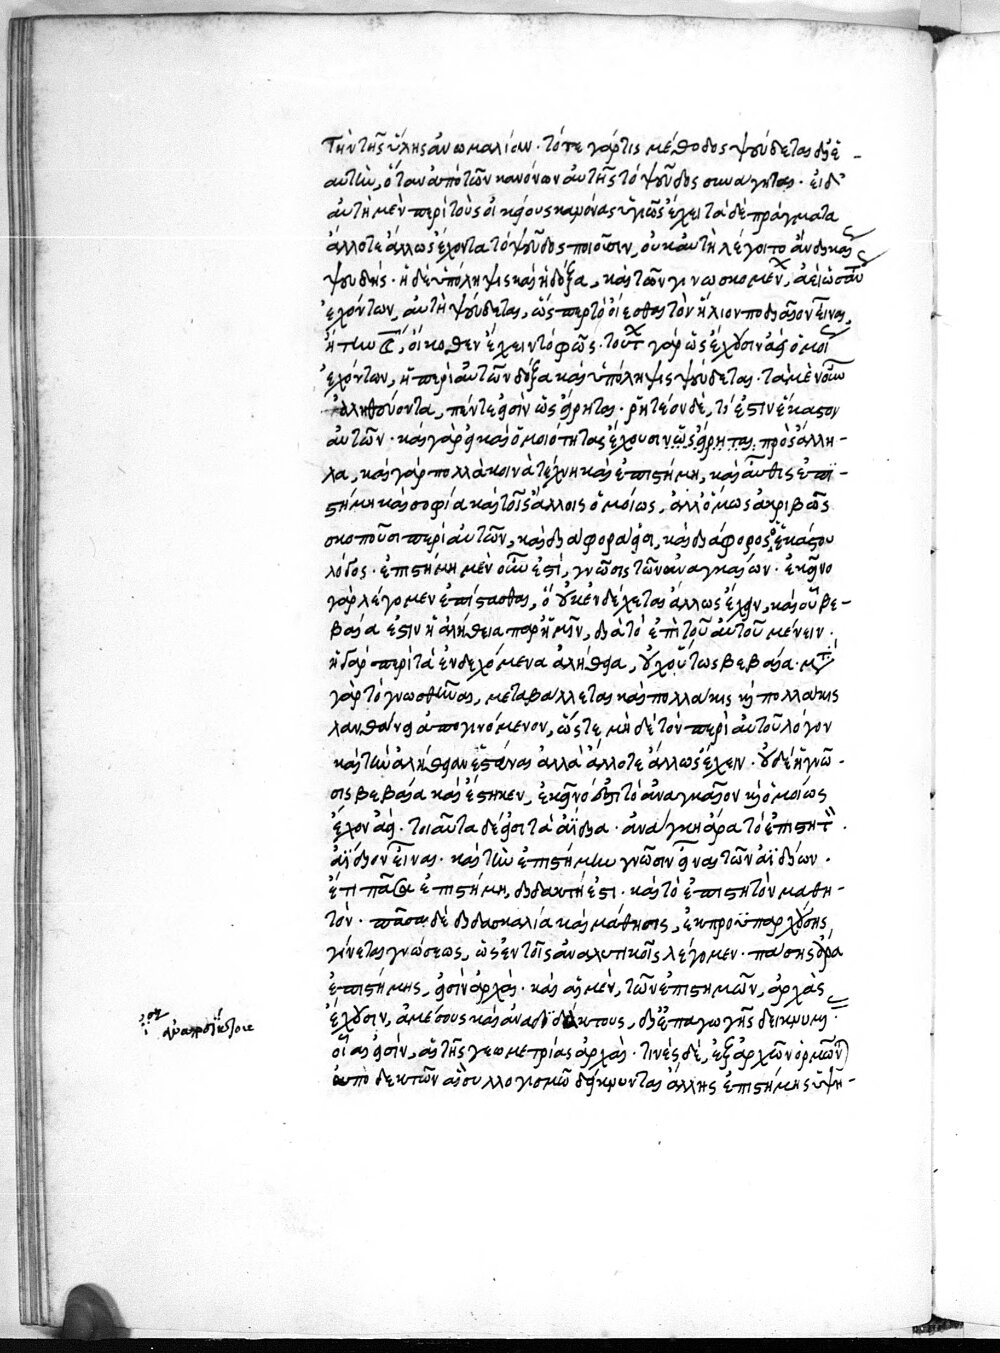 τὴν τῆς ὕλης ἀνωμαλίαν · τότε γάρ τις μέθοδος ψεύδεται δι' ἑ-
αυτὴν, ὅταν ἀπὸ τῶν κανόνων αὐτῆς τὸ ψεῦδος συνάγηται · εἰ δ'
αὐτὴ μὲν περὶ τοὺς οἰκείους κανόνας ὑγιῶς ἔχει τὰ δὲ πράγματα
ἄλλοτε ἄλλως ἔχοντα τὸ ψεῦδος ποιοῦσιν, οὐκ αὐτὴ λέγοιτο ἂν δικαίως
ψευδής · ἡ δὲ ὑπόληψις καὶ ἡ δόξα, καὶ τῶν γινωσκομένων, ἀεὶ ὡσαύτως
ἐχόντων, αὐτὴ ψεύδεται, ὥσπερ τὸ οἴεσθαι τὸν ἥλιον ποδιαῖον εἶναι,
ἢ τὴν, οἴκοθεν ἔχειν τὸ φῶς · τούτων γὰρ ὡς ἔχουσιν ἀεὶ ὁμοίως
ἐχόντων, ἡ περὶ αὐτῶν δόξα καὶ ὑπόληψις ψεύδεται · τὰ μὲν οὖν
ἀληθεύοντα, πέντε εἰσὶν ὡς εἴρηται · ῥητέον δὲ, τί ἐστιν ἕκαστον
αὐτῶν · καὶ γὰρ εἰ καὶ ὁμοιότητας ἔχουσιν ὡς εἴρηται πρὸς ἄλλη-
λα, καὶ γὰρ πολλὰ κοινὰ τέχνη καὶ ἐπιστήμη, καὶ αὖθις ἐπι-
στήμη καὶ σοφία καὶ τοῖς ἄλλοις ὁμοίως, ἀλλ' ὅμως ἀκριβῶς
σκοποῦσι περὶ αὐτῶν, καὶ διαφοραί εἰσι, καὶ διάφορος ὁ ἑκάστου
λόγος · ἐπιστήμη μὲν οὖν ἐστὶ, γνῶσις τῶν ἀναγκαίων · ἐκεῖνο
γὰρ λέγομεν ἐπίστασθαι, ὃ οὐκ ἐνδέχεται ἄλλως ἔχειν, καὶ οὗ βε-
βαία ἐστὶν ἡ ἀλήθεια παρ' ἡμῖν, διὰ τὸ ἐπὶ τοῦ αὐτοῦ μένειν ·
ἡ γὰρ περὶ τὰ ἐνδεχόμενα ἀλήθεια, οὐχ οὕτως βεβαία · μετὰ
γὰρ τὸ γνωσθῆναι, μεταβάλλεται καὶ πολλάκις καὶ πολλάκις
λανθάνει ἀπογινόμενον, ὥστε μηδὲ τὸν περὶ αὐτοῦ λόγον
καὶ τὴν ἀλήθειαν ἑστάναι ἀλλὰ ἄλλοτε ἄλλως ἔχειν · οὗ δὲ ἡ γνῶ-
σις βεβαία καὶ ἕστηκεν, ἐκεῖνό ἐστι τὸ ἀναγκαῖον καὶ ὁμοίως
ἔχον ἀεί · τοιαῦτα δέ εἰσι τὰ ἀΐδια · ἀνάγκη ἄρα τὸ ἐπιστητὸν
ἀΐδιον εἶναι · καὶ τὴν ἐπιστήμην γνῶσιν εἶναι τῶν ἀϊδίων ·
ἔτι πᾶσα ἐπιστήμη, διδακτή ἐστι · καὶ τὸ ἐπιστητὸν μαθη-
τόν · πᾶσα δὲ διδασκαλία καὶ μάθησις, ἐκ προϋπαρχούσης
γίνεται γνώσεως, ὡς ἐν τοῖς ἀναλυτικοῖς λέγομεν · πάσης ἄρα
ἐπιστήμης, εἰσὶν ἀρχαί · καὶ αἱ μὲν, τῶν ἐπιστημῶν, ἀρχὰς
ἔχουσιν, ἀμέσους καὶ ἀναποδείκτους, δι' ἐπαγωγῆς δεικνυμένας ·
οἷαι εἰσὶν, αἱ τῆς γεωμετρίας ἀρχαί · τινὲς δὲ, ἐξ ἀρχῶν ὁρμῶνται
ἀποδεικτῶν αἳ συλλογισμῷ δείκνυνται ἄλλης ἐπιστήμης